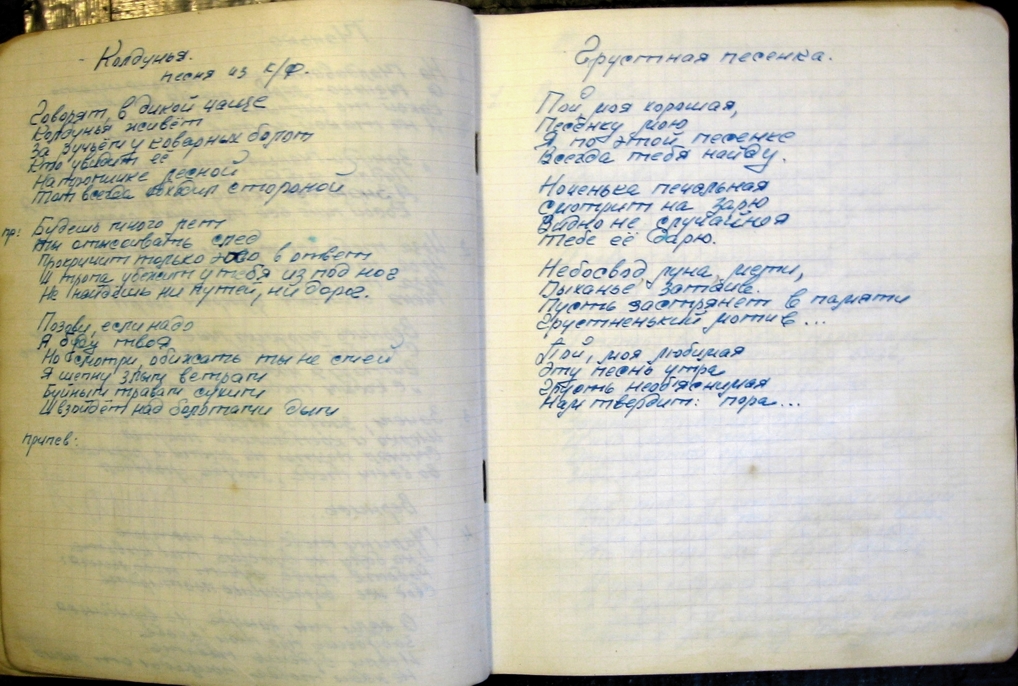 Колдунья.
песня из к/ф.
Говорят, в дикой чаще
Колдунья живёт
За зучьем у коварных болот
Кто увидит её
На тропинке лесной
Тот всегда обходил стороной
пр: Будешь много лет
Ты отыскивать след
Прокричит только эхо в ответ
И тропа убежит у тебя из под ног
Не найдёшь ни путей, ни дорог.
Позови, если надо
Я буду твоя
Но смотри, обижать ты не смей
Я шепну злым ветрам
Буйным травам сухим
И взойдёт над болотами дым
припев:
Грустная песенка.
Пой, моя хорошая,
Песенку мою
Я по этой песенке
Всегда тебя найду.
Ноченька печальная
Смотрит на зарю
Видно не случайная
Тебе её дарю.
Небосвод, луна, мети,
Дыханье, затаив.
Пусть застрянет в памяти
Грустненький мотив...
Пой, моя любимая
Эту песнь утра
Грусть необъяснимая
Нам твердит: пора...